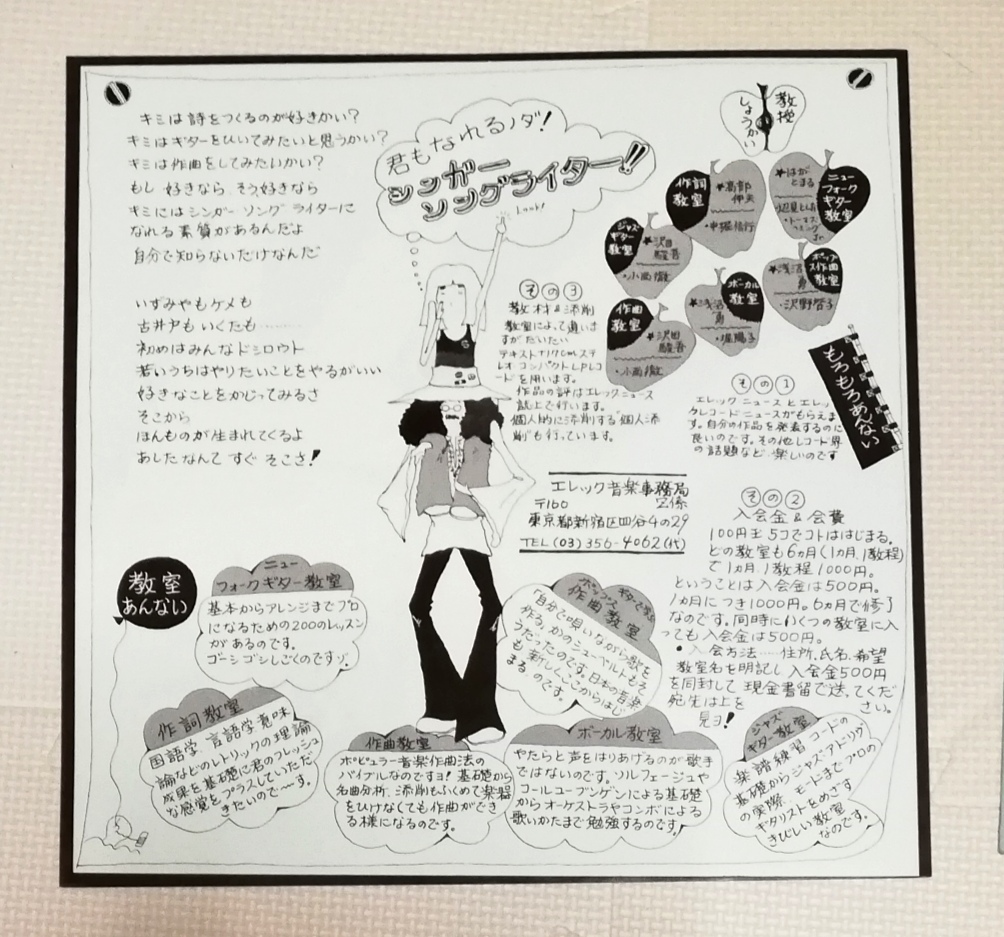 キミは詩をつくるのが好きかい?
キミはギターをひいてみたいと思うかい?
キミは作曲をしてみたいかい?
もし 好きなら そう好きなら
キミにはシンガー ソング ライターに
なれる素質があるんだよ
自分で知らないだけなんだ
いずみやもケメも
古井戸もいくたも…………
初めはみんなドシロウト
若いうちはやりたいことをやるがいい
好きなことをかじってみるさ
そこから
ほんものが生まれてくるよ
あしたなんて すぐ そこさ!
君もなれるノダ!
シンガー
ソングライター!!
Look!
教授
しょうかい
作詞
教室
★高部
伸夫
・中堀信行
★はが
とまる
辺見とん
ニュー
フォーク
ギター
教室
ジャズ
ギター
教室
★沢田
駿吾
・小西徹
作曲
教室
★沢田
駿吾
・小西徹
ボーカル
教室
★浅沼
勇
・堀陽子
ポップ
ス作曲
教室
★浅沼
勇
・沢野啓子
もろもろあんない
その3
教材&添削
教室によって違いま
すがだいたい
テキストと17cmステ
レオ コンパクトLPレコ
ードを用います。
作品の評はエレックニュース
誌上で行います。
個人的に添削する個人添
削も行っています。
その1
エレックニュースとエレッ
クレコードニュースがもらえま
す。自分の作品を発表するのに
良いのです。その他レコード界
の話題など、楽しいのです
エレック音楽事務局
〒160
東京都新宿区四谷4の29
TEL(03)356-4062(代)
その2
入会金&会費
100円玉5コでコトははじまる。
どの教室も6ヵ月(1ヵ月1教程)
で1ヵ月1教程1000円。
ということは入会金は500円。
1ヵ月につき1000円。6ヵ月で修了
なのです。同時にいくつの教室に入
っても入会金は500円。
・入会方法……住所、氏名、希望
教室名を明記し入会金500円
を同封して 現金書留で送ってくだ
さい。
宛先は上を
見ヨ!
教室
あんない
ニュー
フォークギター教室
基本からアレンジまでプロ
になるための200のレッスン
があるのです。
ゴーシゴシしごくのですゾ。
作詞教室
国語学、言語学、意味
論などのレトリックの理論
成果を基礎に君のフレッシュ
な感覚をプラスしていただ
きたいので〜す。
作曲教室
ポピュラー音楽作曲法の
バイブルなのですヨ! 基礎から
名曲分析、添削もふくめて楽器
をひけなくても作曲ができ
る様になるのです。
ギターで学ぶ
ポップス
作曲教室
「自分で唄いながら歌を
作る」かのシューベルトもそ
うだったのです。日本の音楽
も新しくここからはじ
まる、のです。
ボーカル教室
やたらと声をはりあげるのが歌手
ではないのです。ソルフェージュや
コールユーブンゲンによる基礎
からオーケストラやコンボによる
歌いかたまで勉強するのです。
ジャズ
ギター教室
楽譜練習コードの
基礎からジャズ・アドリブ
の実際、モードまでプロの
ギタリストをめざす
きびしい教室
なのです。